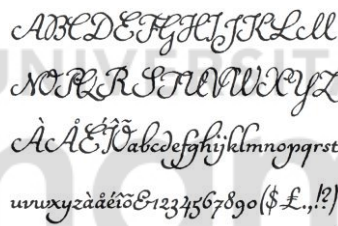 ABCDEFGHIJKLM
NOPQRSTUVWXYZ
ÀÅÉÎÕabcdefghijklmnopqrst
uvwxyzàåéîõ&1234567890($£.,!?)